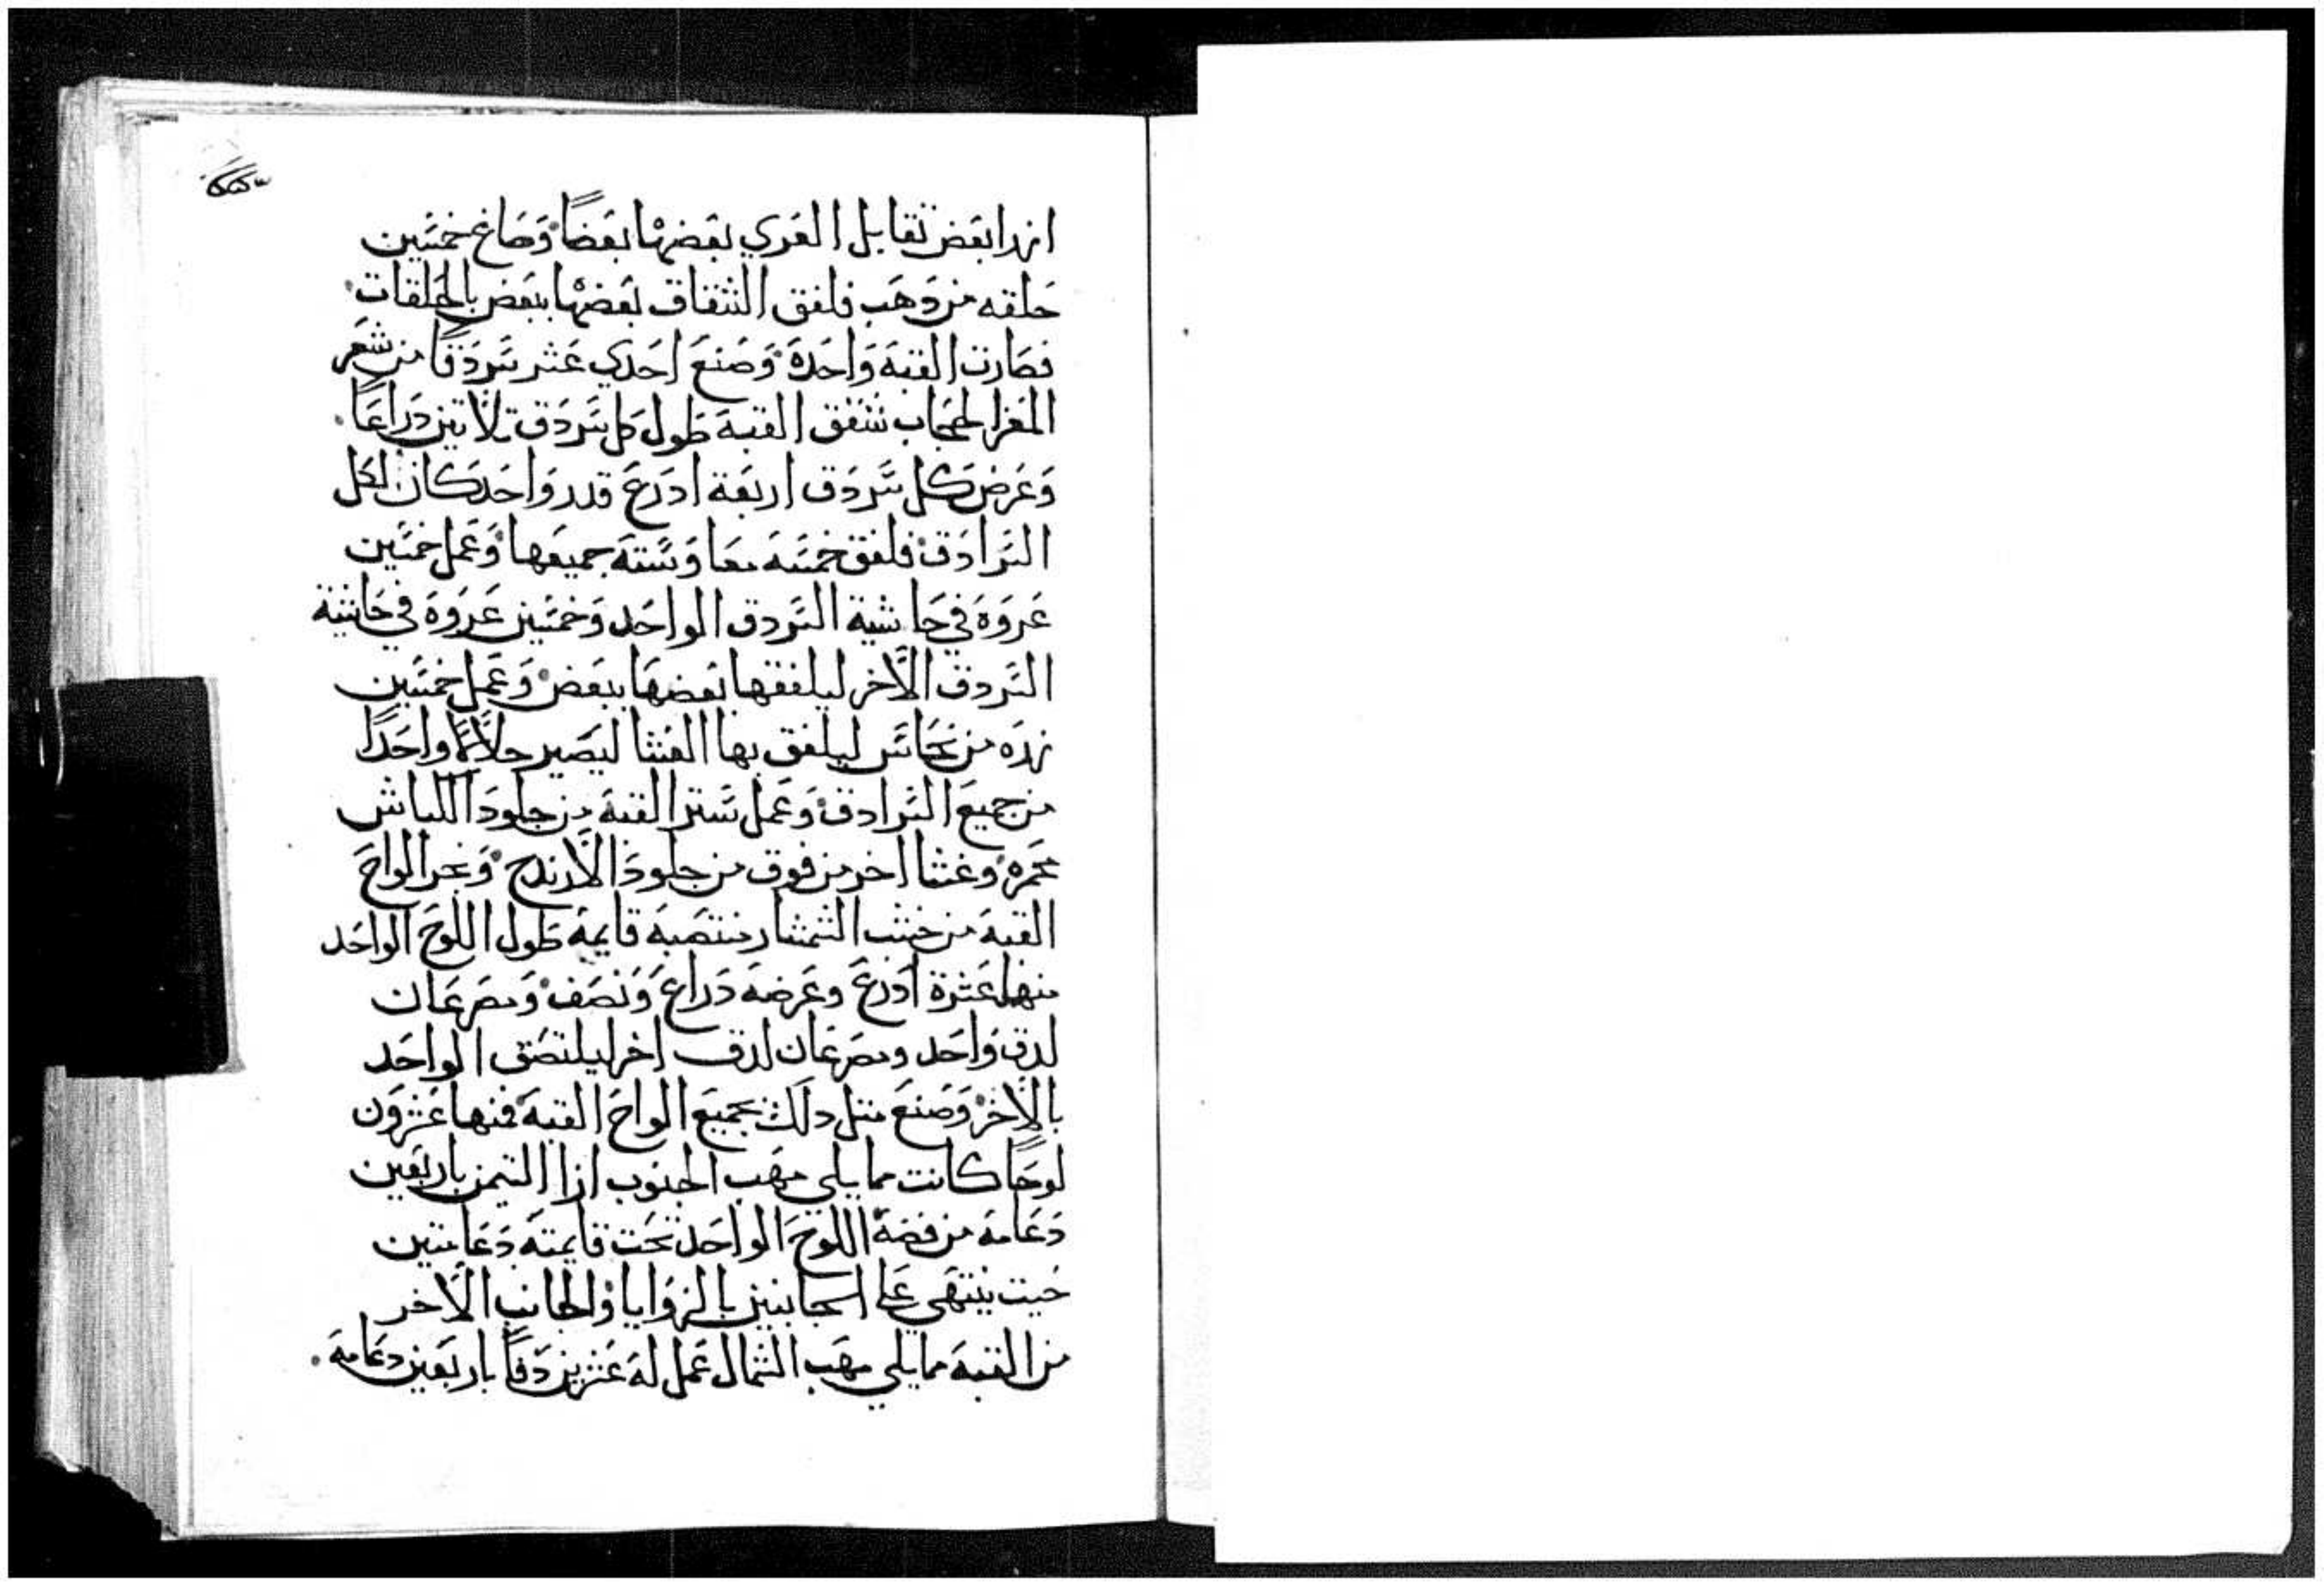 انهدا بعض تقابل العري بعضها بعضًا وصاغ خمسين
حلقه من دهب فلفق الشقاق بعضها ببعض بالحلقات
فصارت القبه واحدة وصنع احدي عشر سردقًا من شعر
المعز الحجاب شقق القبه طول كل سردق تلاتين دراعًا
وعرض كل سردق اربعة ادرع قدر واحد كان لكل
السرادق فلفق خمسه معا وسته جميعها وعمل خمسين
عروة في حاشية السردق الواحد وخمسين عروة في حاشية
السردق الاخر ليلفقها بعضها ببعض وعمل خمسين
زره من نحاس ليلفق بها الغشا ليصير حلالًا واحدًا
من جميع السرادق وعمل ستر القبه من جلود الكباش
محمره وغشا اخر من فوق من جلود الارندج ونجر الواح
القبه من خشب الشمشار منتصبه قايمة طول اللوح الواحد
منها عشرة ادرع وعرضه دراع ونصف ومصرعان
لدف واحد ومصرعان لدف اخر ليلتصق الواحد
بالاخر وصنع متل دلك بجميع الواح القبه فمنها عشرون
لوحًا كانت مما يلي مهب الجنوب ازا التيمن باربعين
دعامه من فضة اللوح الواحد تحت قايمته دعامتين
حيت ينتهي على الجانبين بالزوايا والجانب الاخر
من القبه مما يلي مهب الشمال عمل له عشرين دفًا باربعين دعامه